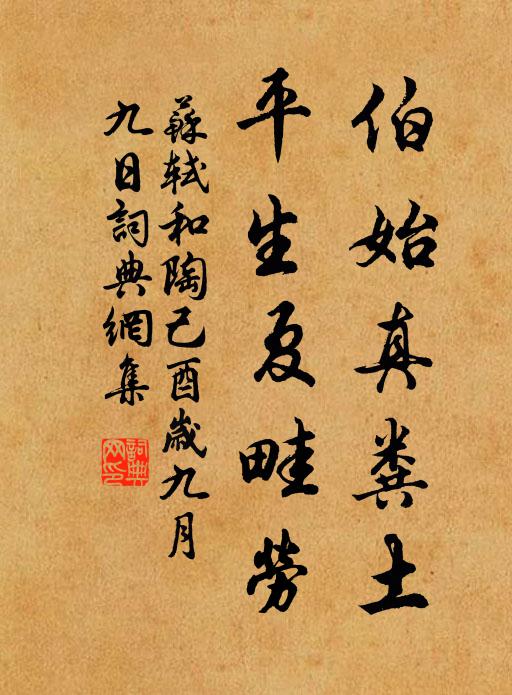 伯始真糞土
平生夏畦勞
蘇軾和陶己酉歲九月
九日詞典網集
詞典
网印